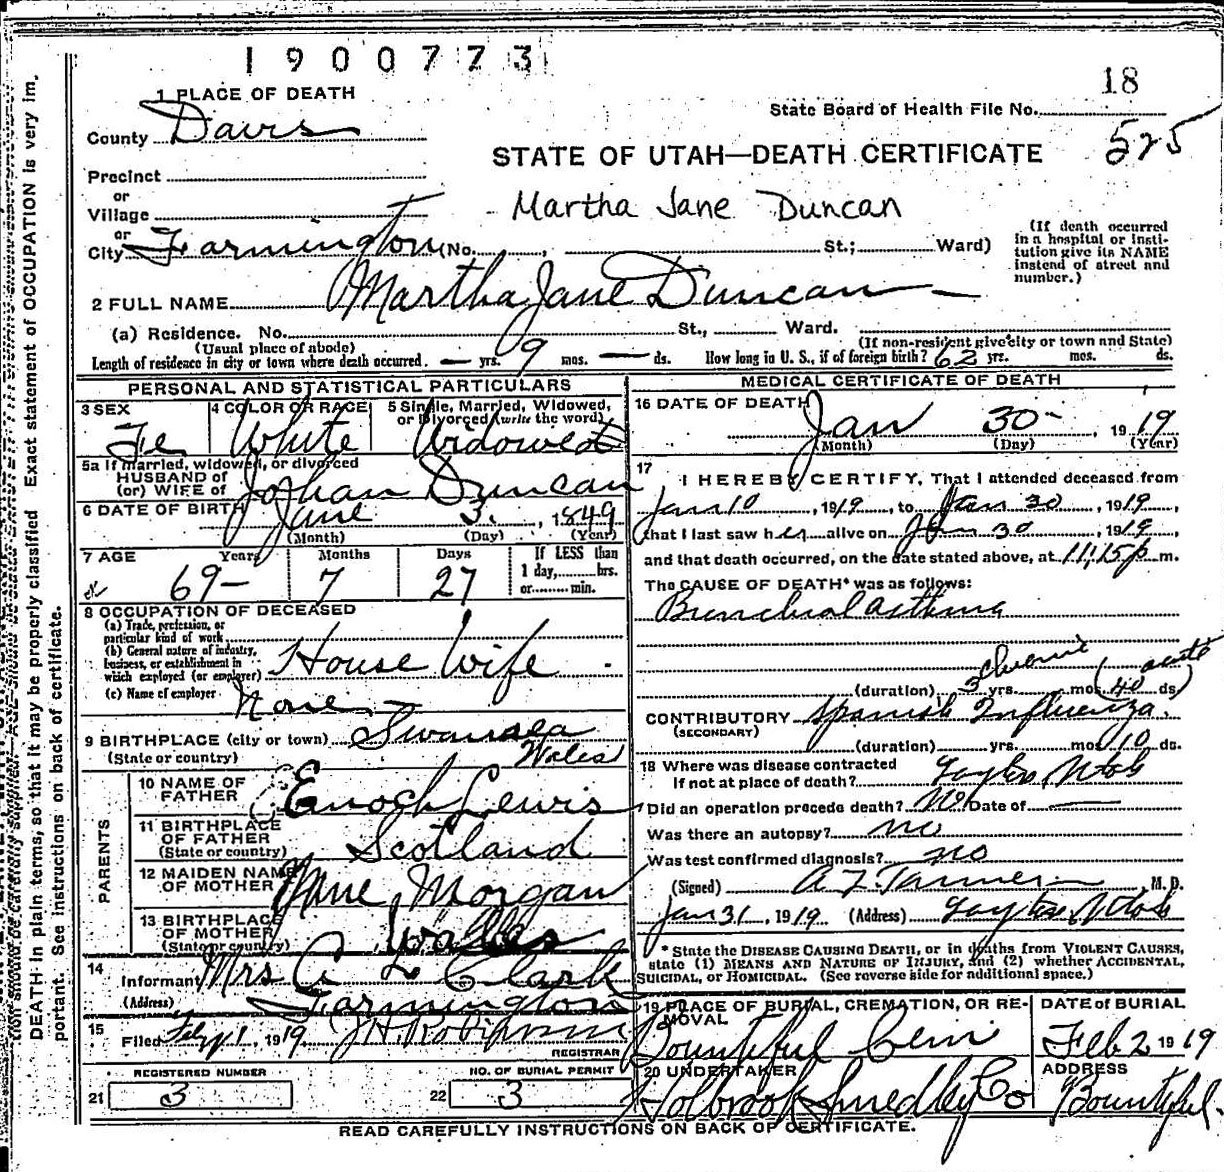 1900773
18
1 PLACE OF DEATH
State Board of Health File No.
County Davis
525
STATE OF UTAH—DEATH CERTIFICATE
Precinct
or
Village
Martha Jane Duncan
or
City Farmington (No. , St.; Ward)
(If death occurred in a hospital or insti-
tution give its NAME instead of street and number.)
2 FULL NAME Martha Jane Duncan
(a) Residence. No. St., Ward.
(Usual place of abode) (If non-resident give city or town and State)
Length of residence in city or town where death occurred. — yrs. 9 mos. — ds. How long in U. S., if of foreign birth? 62 yrs. mos. ds.
PERSONAL AND STATISTICAL PARTICULARS
3 SEX 4 COLOR OR RACE 5 Single, Married, Widowed, or Divorced (write the word)
Fe White Widowed
5a If married, widowed, or divorced
HUSBAND of
(or) WIFE of Duncan
6 DATE OF BIRTH June 3, 1849
(Month) (Day) (Year)
7 AGE Years Months Days If LESS than
69 7 27 1 day, hrs.
or min.
8 OCCUPATION OF DECEASED
(a) Trade, profession, or
particular kind of work
(b) General nature of industry,
business, or establishment in
which employed (or employer) House Wife
(c) Name of employer None
9 BIRTHPLACE (city or town) Swansea
(State or country) Wales
PARENTS
10 NAME OF
FATHER Enoch Lewis
11 BIRTHPLACE
OF FATHER
(State or country) Scotland
12 MAIDEN NAME
OF MOTHER Jane Morgan
13 BIRTHPLACE
OF MOTHER
(State or country) Wales
14
Informant Mrs A L Clark
(Address) Farmington
15
Filed Feby 1, 1919 J H Robinson
REGISTRAR
REGISTERED NUMBER NO. OF BURIAL PERMIT
21 3 22 3
MEDICAL CERTIFICATE OF DEATH
16 DATE OF DEATH
Jan 30 - , 1919
(Month) (Day) (Year)
17
I HEREBY CERTIFY, That I attended deceased from
Jan 10, 1919, to Jan 30, 1919,
that I last saw her alive on Jan 30, 1919,
and that death occurred, on the date stated above, at 11:15 p m.
The CAUSE OF DEATH* was as follows:
Bronchial asthma
chronic acute
(duration) 3 yrs. mos. (40 ds)
CONTRIBUTORY Spanish Influenza.
(SECONDARY)
(duration) yrs. mos. 10 ds.
18 Where was disease contracted
If not at place of death? Layton, Utah
Did an operation precede death? No Date of —
Was there an autopsy? no
Was test confirmed diagnosis? no
(Signed) A Z Tanner M. D.
Jan 31, 1919. (Address) Layton Utah
* State the DISEASE CAUSING DEATH, or in deaths from VIOLENT CAUSES,
state (1) MEANS AND NATURE OF INJURY, and (2) whether ACCIDENTAL,
SUICIDAL, or HOMICIDAL. (See reverse side for additional space.)
19 PLACE OF BURIAL, CREMATION, OR RE-
MOVAL DATE of BURIAL
Bountiful Cem Feb 2 1919
20 UNDERTAKER ADDRESS
Holbrook Smedley Co Bountiful
READ CAREFULLY INSTRUCTIONS ON BACK OF CERTIFICATE.
DEATH in plain terms, so that it may be properly classified. Exact statement of OCCUPATION is very im-
portant. See instructions on back of certificate.